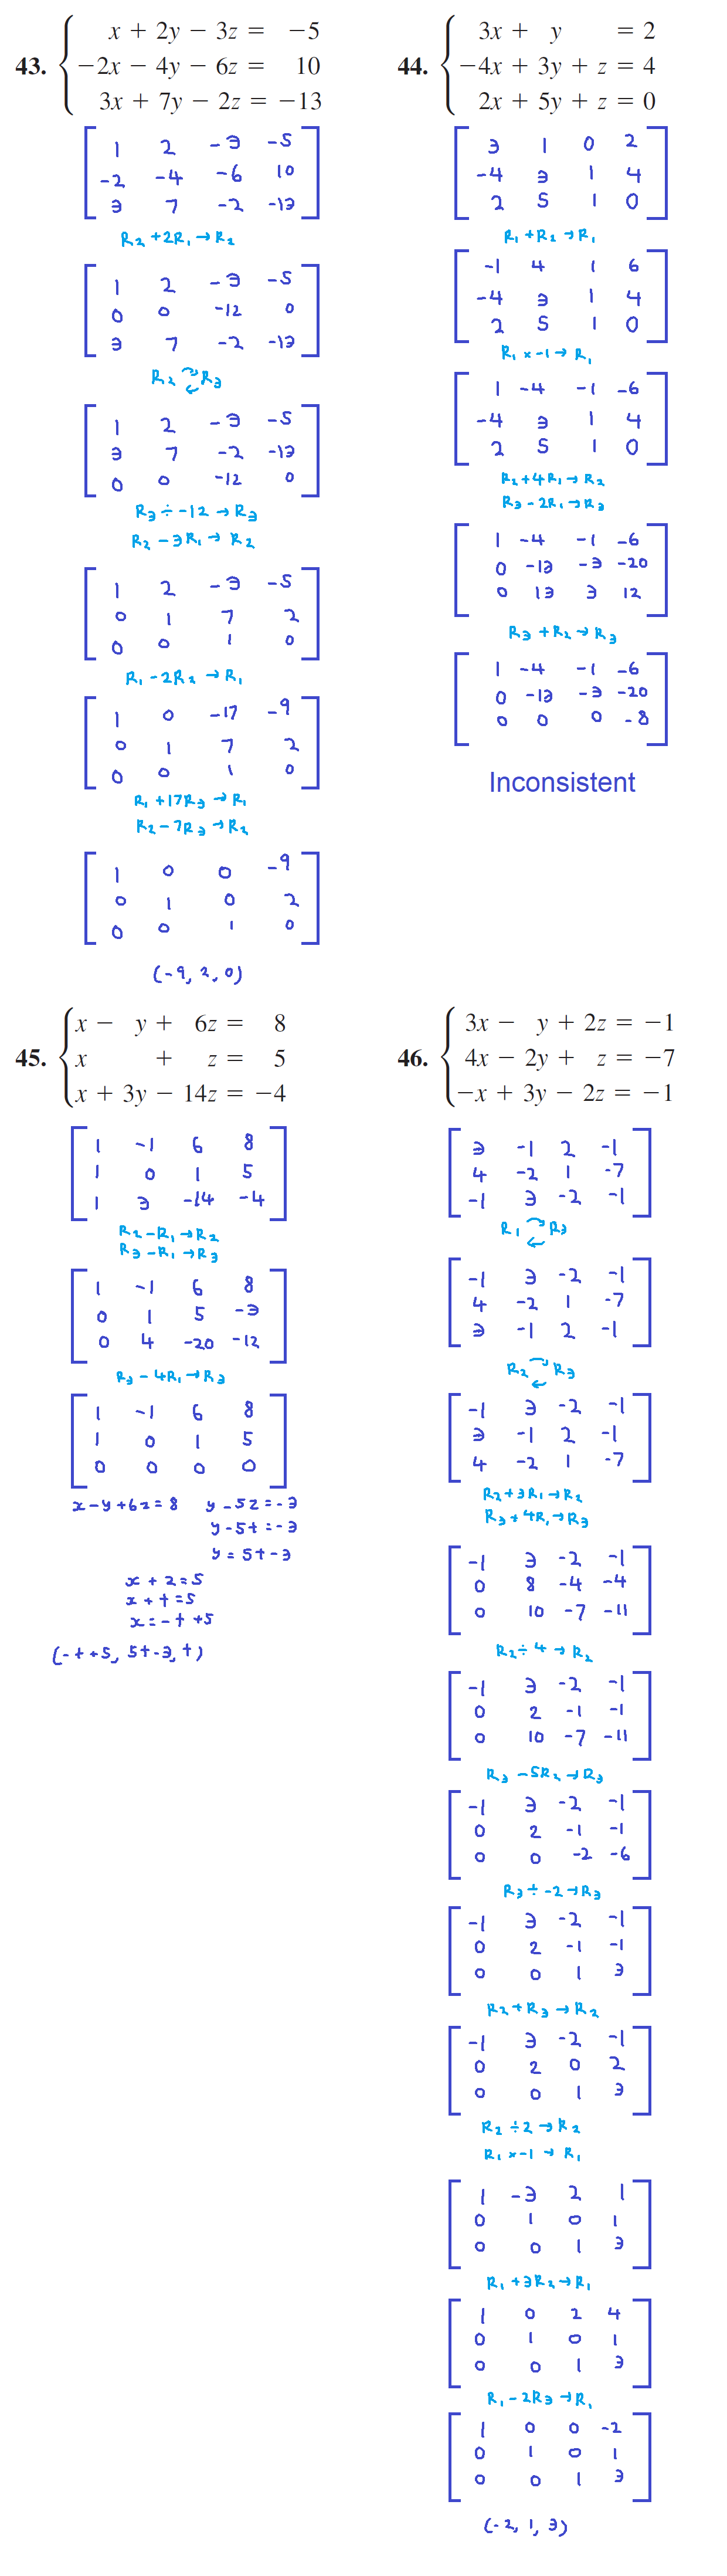 43. x + 2y − 3z = −5
−2x − 4y − 6z = 10
3x + 7y − 2z = −13
1 2 -3 -5
-2 -4 -6 10
3 7 -2 -13
R2 + 2R1 → R2
1 2 -3 -5
0 0 -12 0
3 7 -2 -13
R2 ⇄ R3
1 2 -3 -5
3 7 -2 -13
0 0 -12 0
R3 ÷ -12 → R3
R2 - 3R1 → R2
1 2 -3 -5
0 1 7 2
0 0 1 0
R1 - 2R2 → R1
1 0 -17 -9
0 1 7 2
0 0 1 0
R1 + 17R3 → R1
R2 - 7R3 → R2
1 0 0 -9
0 1 0 2
0 0 1 0
(-9, 2, 0)
44. 3x + y = 2
−4x + 3y + z = 4
2x + 5y + z = 0
3 1 0 2
-4 3 1 4
2 5 1 0
R1 + R2 → R1
-1 4 1 6
-4 3 1 4
2 5 1 0
R1 × -1 → R1
1 -4 -1 -6
-4 3 1 4
2 5 1 0
R2 + 4R1 → R2
R3 - 2R1 → R3
1 -4 -1 -6
0 -13 -3 -20
0 13 3 12
R3 + R2 → R3
1 -4 -1 -6
0 -13 -3 -20
0 0 0 -8
Inconsistent
45. x − y + 6z = 8
x + z = 5
x + 3y − 14z = −4
1 -1 6 8
1 0 1 5
1 3 -14 -4
R2 - R1 → R2
R3 - R1 → R3
1 -1 6 8
0 1 5 -3
0 4 -20 -12
R3 - 4R1 → R3
1 -1 6 8
1 0 1 5
0 0 0 0
x - y + 6z = 8 y - 5z = -3
y - 5t = -3
y = 5t - 3
x + z = 5
x + t = 5
x = -t + 5
(-t + 5, 5t - 3, t)
46. 3x − y + 2z = −1
4x − 2y + z = −7
−x + 3y − 2z = −1
3 -1 2 -1
4 -2 1 -7
-1 3 -2 -1
R1 ⇄ R3
-1 3 -2 -1
4 -2 1 -7
3 -1 2 -1
R2 ⇄ R3
-1 3 -2 -1
3 -1 2 -1
4 -2 1 -7
R2 + 3R1 → R2
R3 + 4R1 → R3
-1 3 -2 -1
0 8 -4 -4
0 10 -7 -11
R2 ÷ 4 → R2
-1 3 -2 -1
0 2 -1 -1
0 10 -7 -11
R3 - 5R2 → R3
-1 3 -2 -1
0 2 -1 -1
0 0 -2 -6
R3 ÷ -2 → R3
-1 3 -2 -1
0 2 -1 -1
0 0 1 3
R2 + R3 → R2
-1 3 -2 -1
0 2 0 2
0 0 1 3
R2 ÷ 2 → R2
R1 × -1 → R1
1 -3 2 1
0 1 0 1
0 0 1 3
R1 + 3R2 → R1
1 0 2 4
0 1 0 1
0 0 1 3
R1 - 2R3 → R1
1 0 0 -2
0 1 0 1
0 0 1 3
(-2, 1, 3)